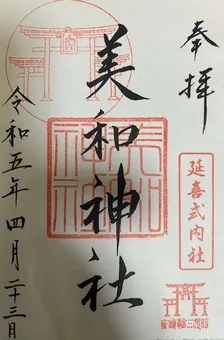 奉拝
延喜式内社
美和神社
美和神社
令和五年四月二十三日